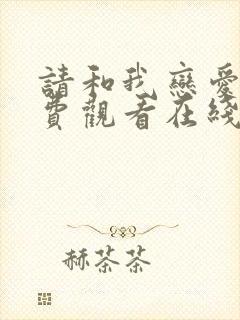 請和我戀愛
費觀看在綫
赫茶茶